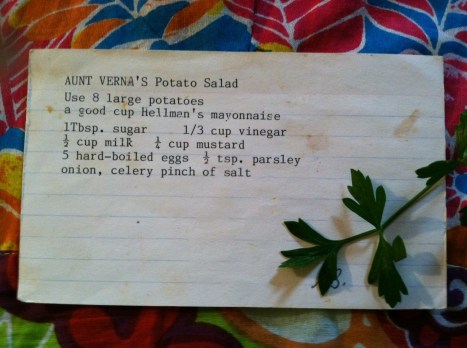 AUNT VERNA'S Potato Salad
Use 8 large potatoes
a good cup Hellmen's mayonnaise
1Tbsp. sugar 1/3 cup vinegar
½ cup milk ¼ cup mustard
5 hard-boiled eggs ½ tsp. parsley
onion, celery pinch of salt